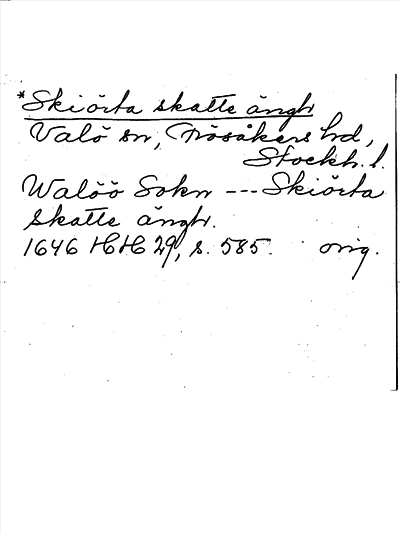 *Skiörta skatte ängh
Valö sn, Frösåkers hd,
Stockh. l.
Walöö Sokn --- Skiörta
skatte ängh.
1646 HH 29, s. 585. orig.